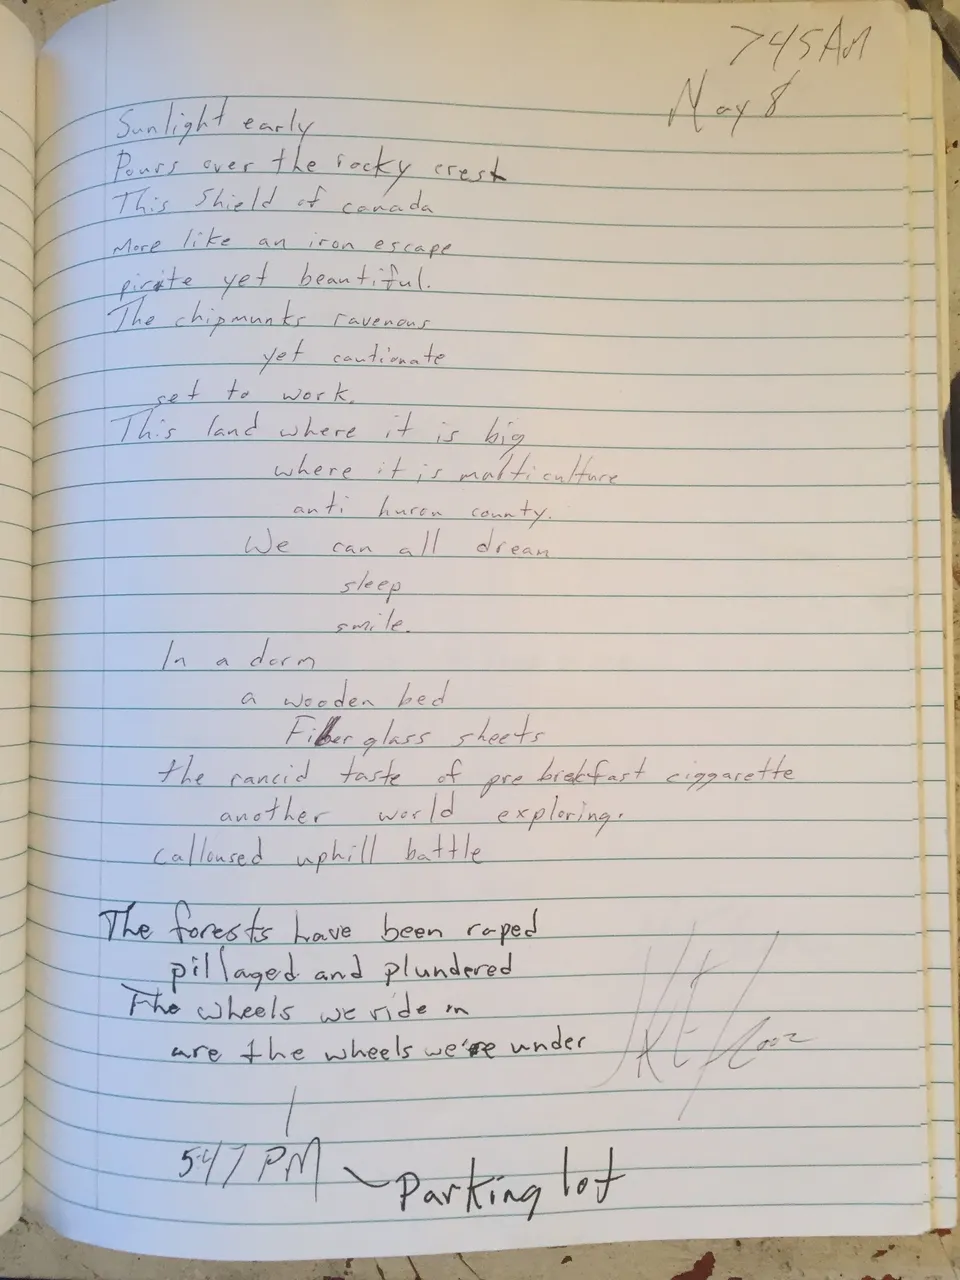 745AM
May 8
Sunlight early
Pours over the rocky crest
This Shield of canada
More like an iron escape
pirite yet beautiful.
The chipmunks ravenous
yet cautionate
set to work.
This land where it is big
where it is multiculture
anti huron county.
We can all dream
sleep
smile.
In a dorm
a wooden bed
Fiberglass sheets
the rancid taste of pre brekfast ciggarette
another world exploring.
calloused uphill battle
The forests have been raped
pillaged and plundered
The wheels we ride in
are the wheels we're under
2002
547 PM
Parking lot